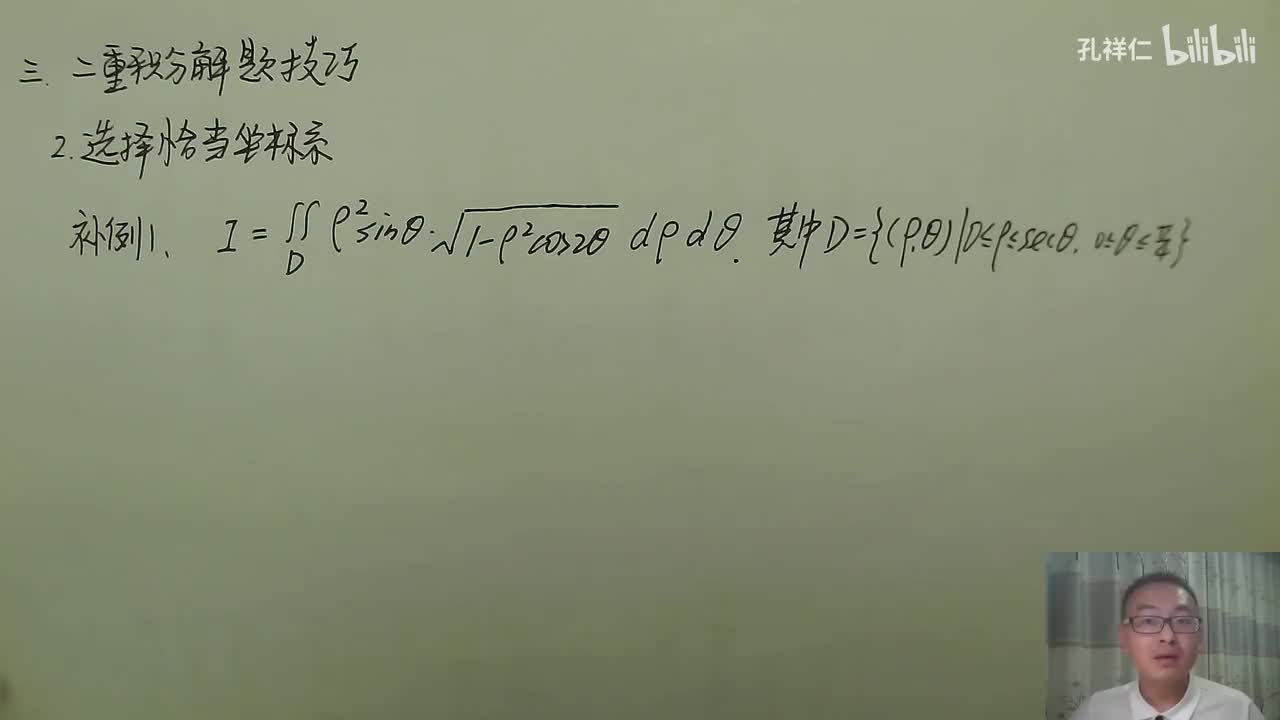 孔祥仁 bilibili
三. 二重积分解题技巧
2.选择恰当坐标系
补例1、 I = ∬_D ρ²sinθ·√(1-ρ²cos2θ) dρdθ. 其中D={(ρ,θ)|0≤ρ≤secθ, 0≤θ≤π/4}